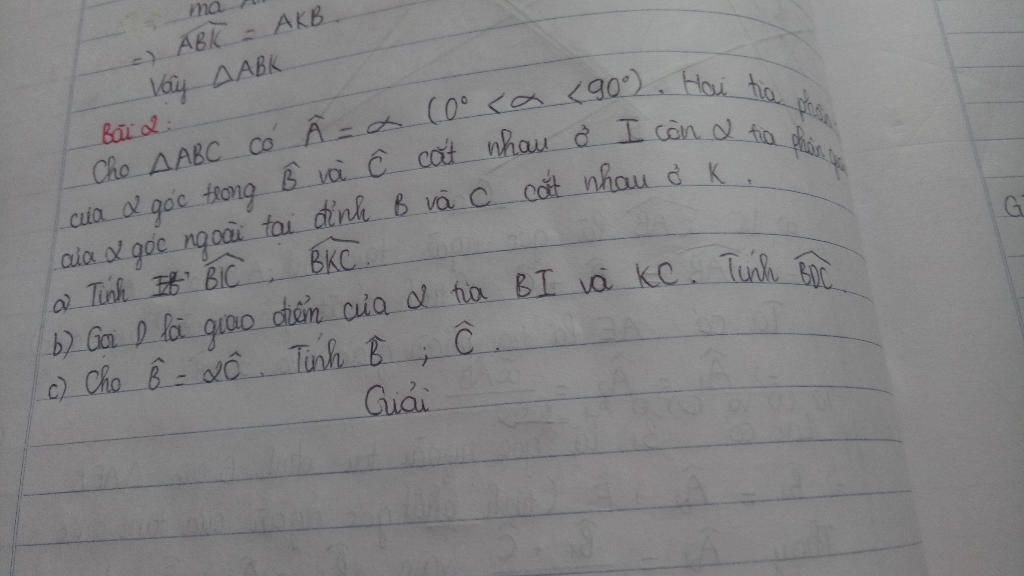 mà
=> ABK = AKB.
Vậy △ABK
Bài 2:
Cho △ABC có Â = α (0° < α < 90°). Hai tia phân
của 2 góc trong B̂ và Ĉ cắt nhau ở I còn 2 tia phân
của 2 góc ngoài tại đỉnh B và C cắt nhau ở K.
a) Tính BIC ; BKC.
b) Gọi D là giao điểm của 2 tia BI và KC. Tính BDC.
c) Cho B̂ = 2Ĉ. Tính B̂ ; Ĉ.
Giải
G